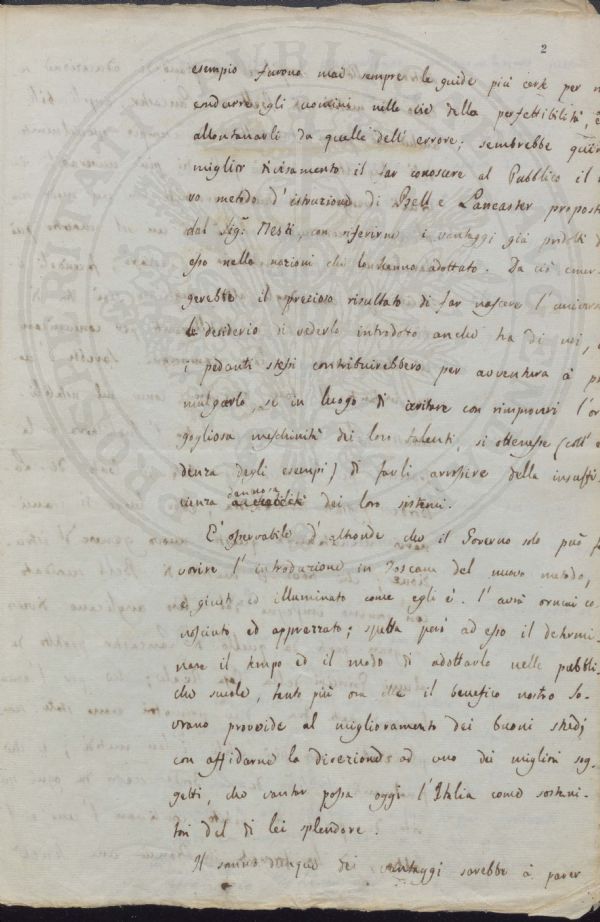 2
esempio furono mai sempre le guide più certe per
condurre gli uomini nelle vie della perfettibilità,
allontanarli da quelle dell'errore; sembrebbe
miglior divisamento il far conoscere al Pubblico il
vo metodo d'istruzione di Bell e Lancaster propost
dal Sigr. Mesti, con riferirne i vantaggi già prodotti
esso nelle nazioni che lo hanno adottato. Da ciò emer-
gerebbe il prezioso risultato di far nascere l'univers
le desiderio di vederlo introdotto anche tra di noi,
i pedanti stessi contribuirebbero per avventura à
mulgarlo, se in luogo di irritare con rimproveri l'or
gogliosa meschinità dei loro talenti, si ottenesse (coll'
denza degli esempi) di farli arrossire della insuffi-
cienza dannosa dei loro sistemi.
E' osservabile d'altronde che il Governo solo può fa
vorire l'introduzione in Toscana del nuovo metodo,
e giusto ed illuminato come egli è. l'avrà ormai co
nosciuto ed apprezzato; spetta però ad esso il determi-
nare il tempo ed il modo di adottarlo nelle pubbli-
che scuole, tanto più ora che il benefico nostro So-
vrano provvide al miglioramento dei buoni studj
con affidarne la direzione ad uno dei migliori sog-
getti, che vantar possa oggi l'Italia come sosteni-
tori del di lei splendore.
Il sunto dunque dei vantaggi sarebbe à parer